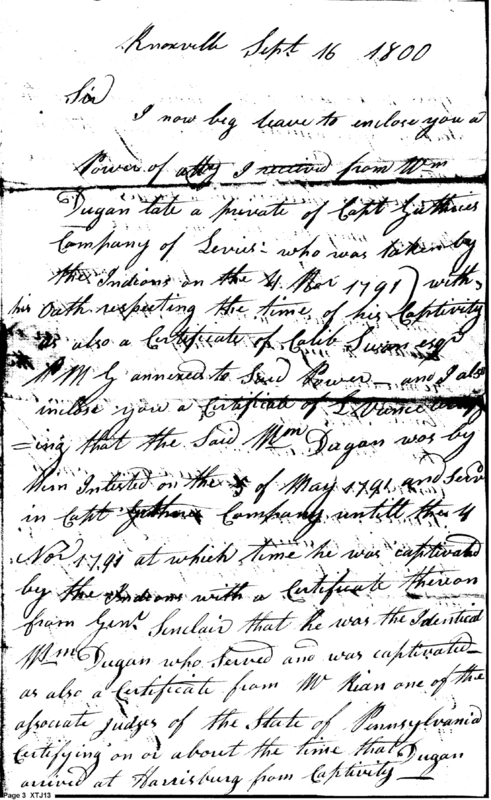 Knoxville Sept. 16 1800
Sir
I now beg leave to enclose you a
Power of atty I received from Wm
Dugan late a private of Capt Guthries
Company of Levies - who was taken by
the Indians on the 4 Nov 1791) with
his Oath respecting the time of his Captivity
as also a Certificate of Caleb Swan esqr
P M G annexed to Said Power - and I also
inclose you a Certificate of
=ing that the Said Wm Dugan was by
them Intested on the 5 of May 1791 and Servd
in Capt Guthries Company untill the 4
Novr 1791 at which time he was captivated
by the Indians with a Certificate thereon
from Genl. Sinclair that he was the Identical
Wm Dugan who Served and was captivated -
as also a Certificate from Mr Kian one of the
associate Judges of the State of Pennsylvania
Certifying on or about the time that Dugan
arrived at Harrisburg from Captivity -
Page 3 XTJ13